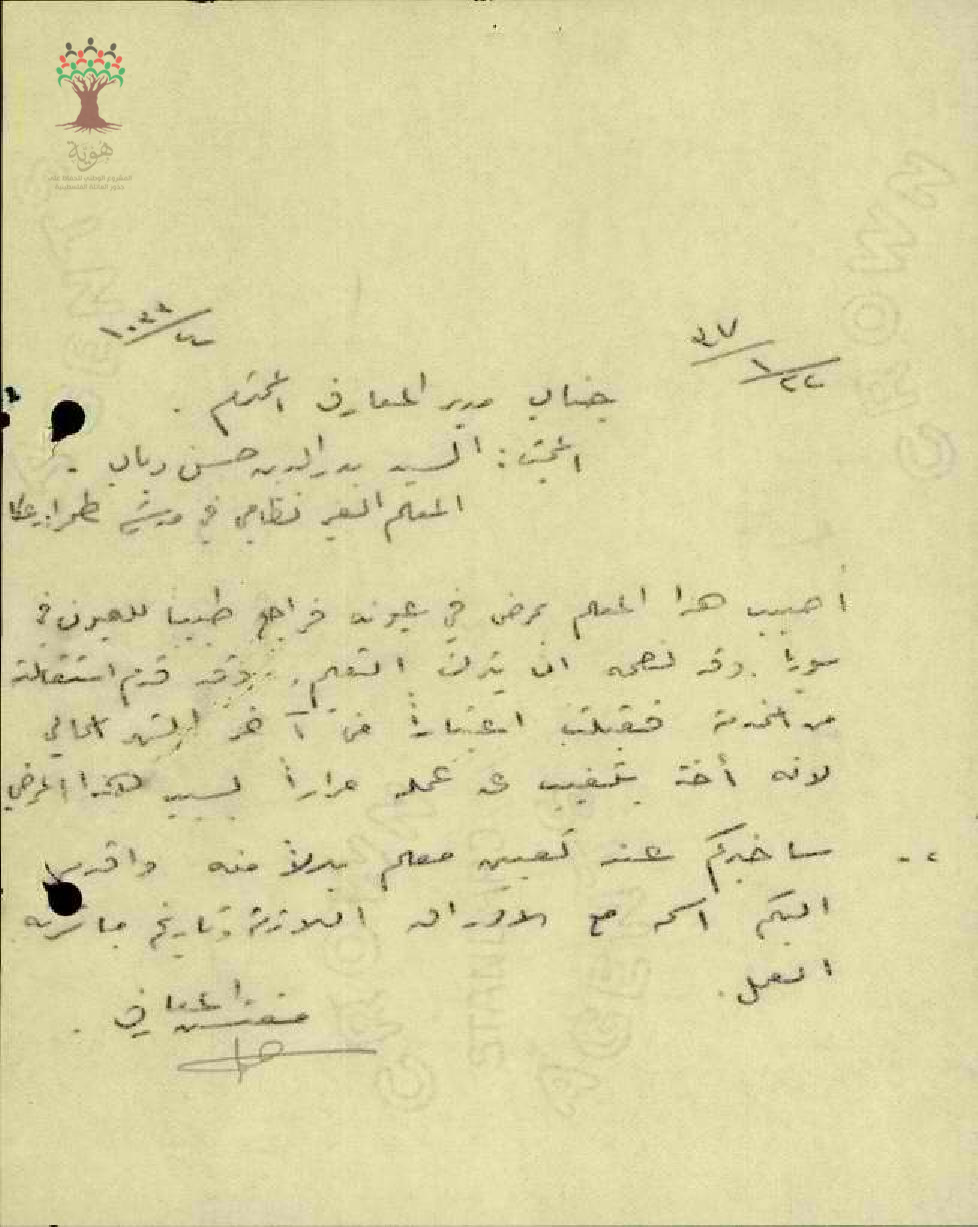 هوية
المشروع الوطني للحفاظ على
جذور العائلة الفلسطينية
٣٧/١/٢٢
جناب مدير المعارف المحترم .
المبحث : السيد بدر الدين حسن دياب .
المعلم الغير نظامي في مدرسة
أصيب هذا المعلم بمرض في عيونه فراجع طبيبا للعيون في
سوريا . وقد نصحه ان يترك التعليم . وقد قدم استقالته
من الخدمة فقبلت اعتباراً من آخر الشهر الحالي
لانه أخذ يتغيب عن عمله مراراً بسبب هذا المرض
٢ - ساخبركم عند تعيين معلم بدلاً منه واقدم
اليكم اسمه مع الاوراق اللازمة وتاريخ مباشرته
العمل .
مفتش المعارف .